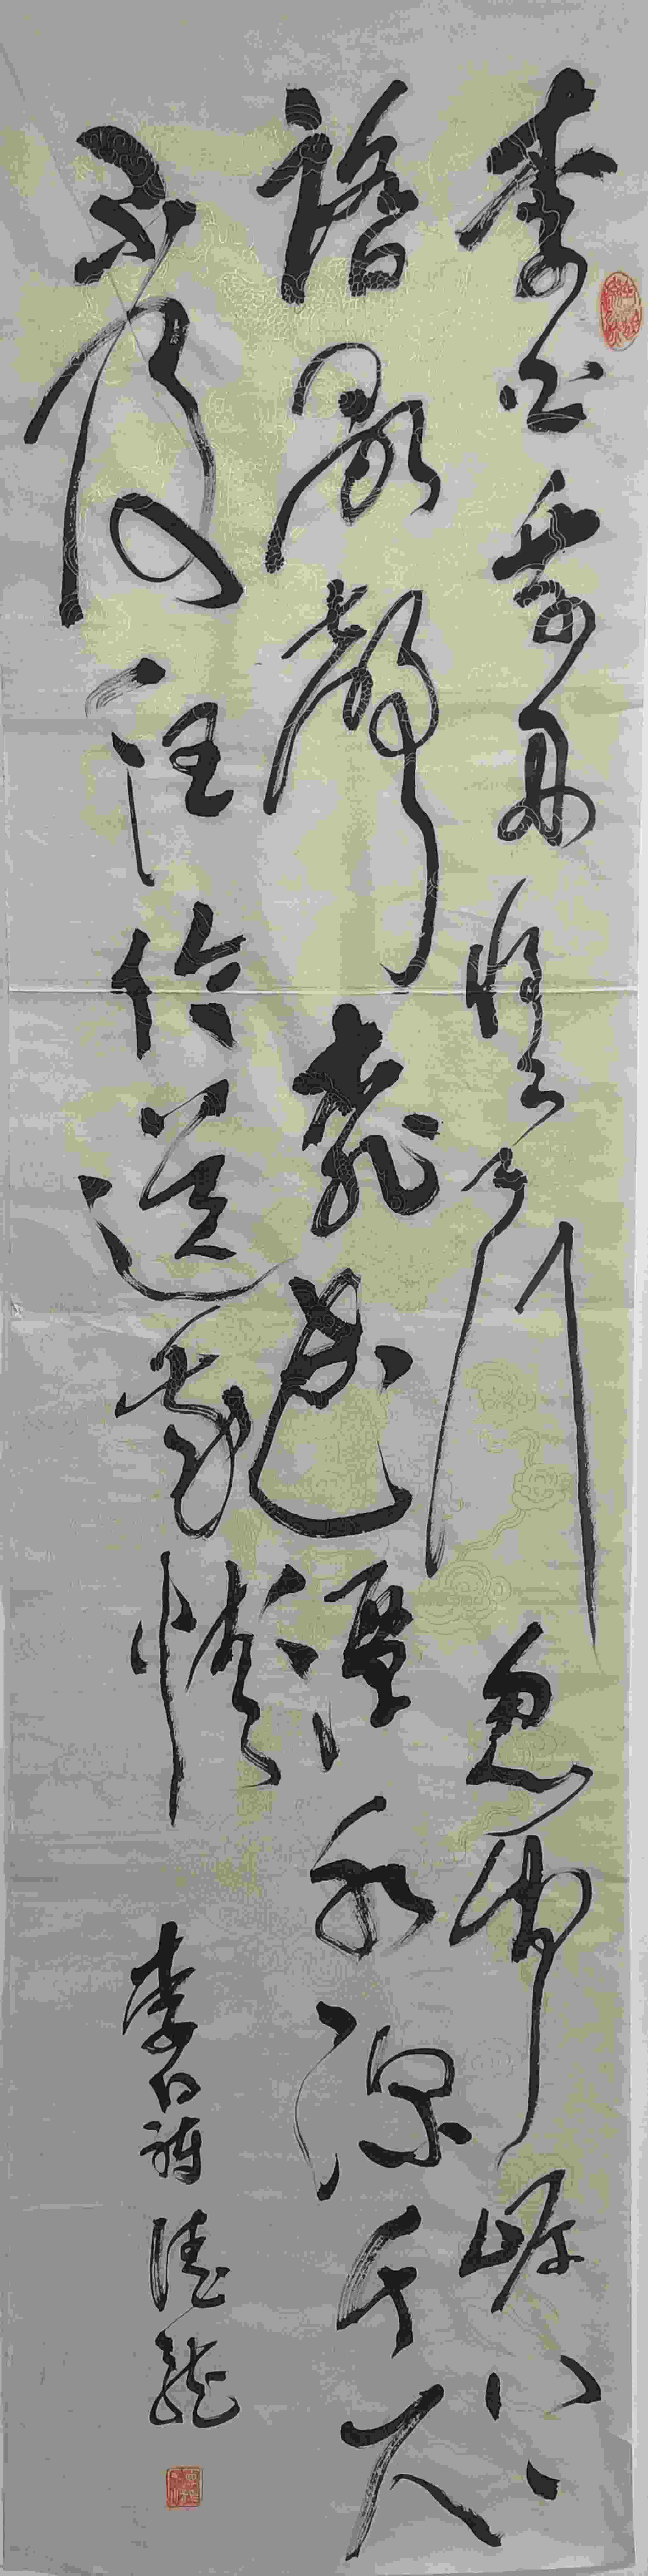 李白乘舟将欲行忽闻岸上
踏歌声桃花潭水深千尺
不及汪伦送我情
李白诗 德龙